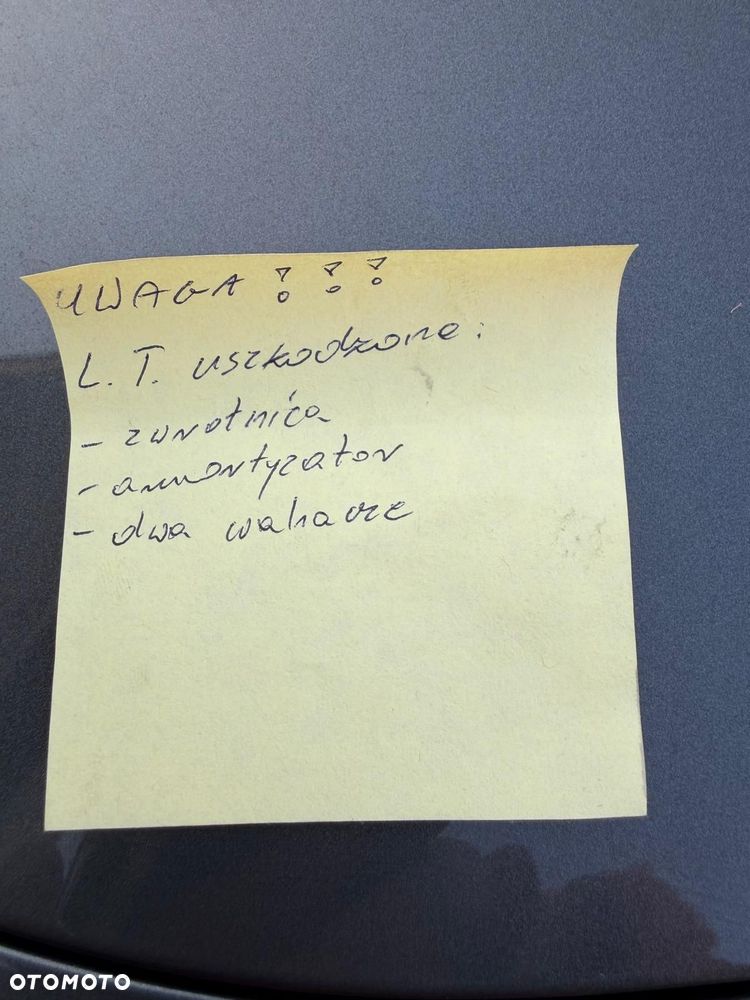 UWAGA !!!
L.T. uszkodzone:
- zwrotnica
- amortyzator
- dwa wahacze
OTOMOTO